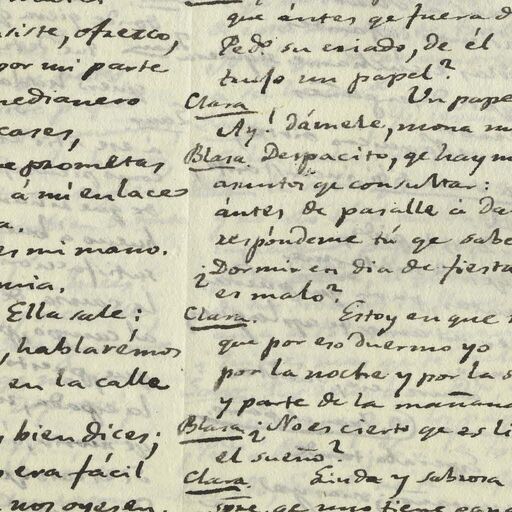 siste, ofrezco,
por mi parte
medianero
casas,
e prometas
á mi enlaces
a.
es mi mano.
mia.
Ella sale;
, hablarémos
en la calle
s bien dices;
era fácil
nos oyesen.
que ántes qe fuera d
Pedo su criado, de él
trujo un papel?
Clara Un pape
Ay! Dámele, mona m
Blasa. Despacito, qe hay m
asuntos qe consultar:
ántes de pasalle á Da
respóndeme tú qe sabe
¿Dormir en dia de fiesta
es malo?
Clara. Estoy en que
que por eso duermo yo
por la noche y por la
y parte de la mañana
Blasa ¿No es cierto qe es li
el sueño?
Clara. Linda y sabrosa
qe uno tiene